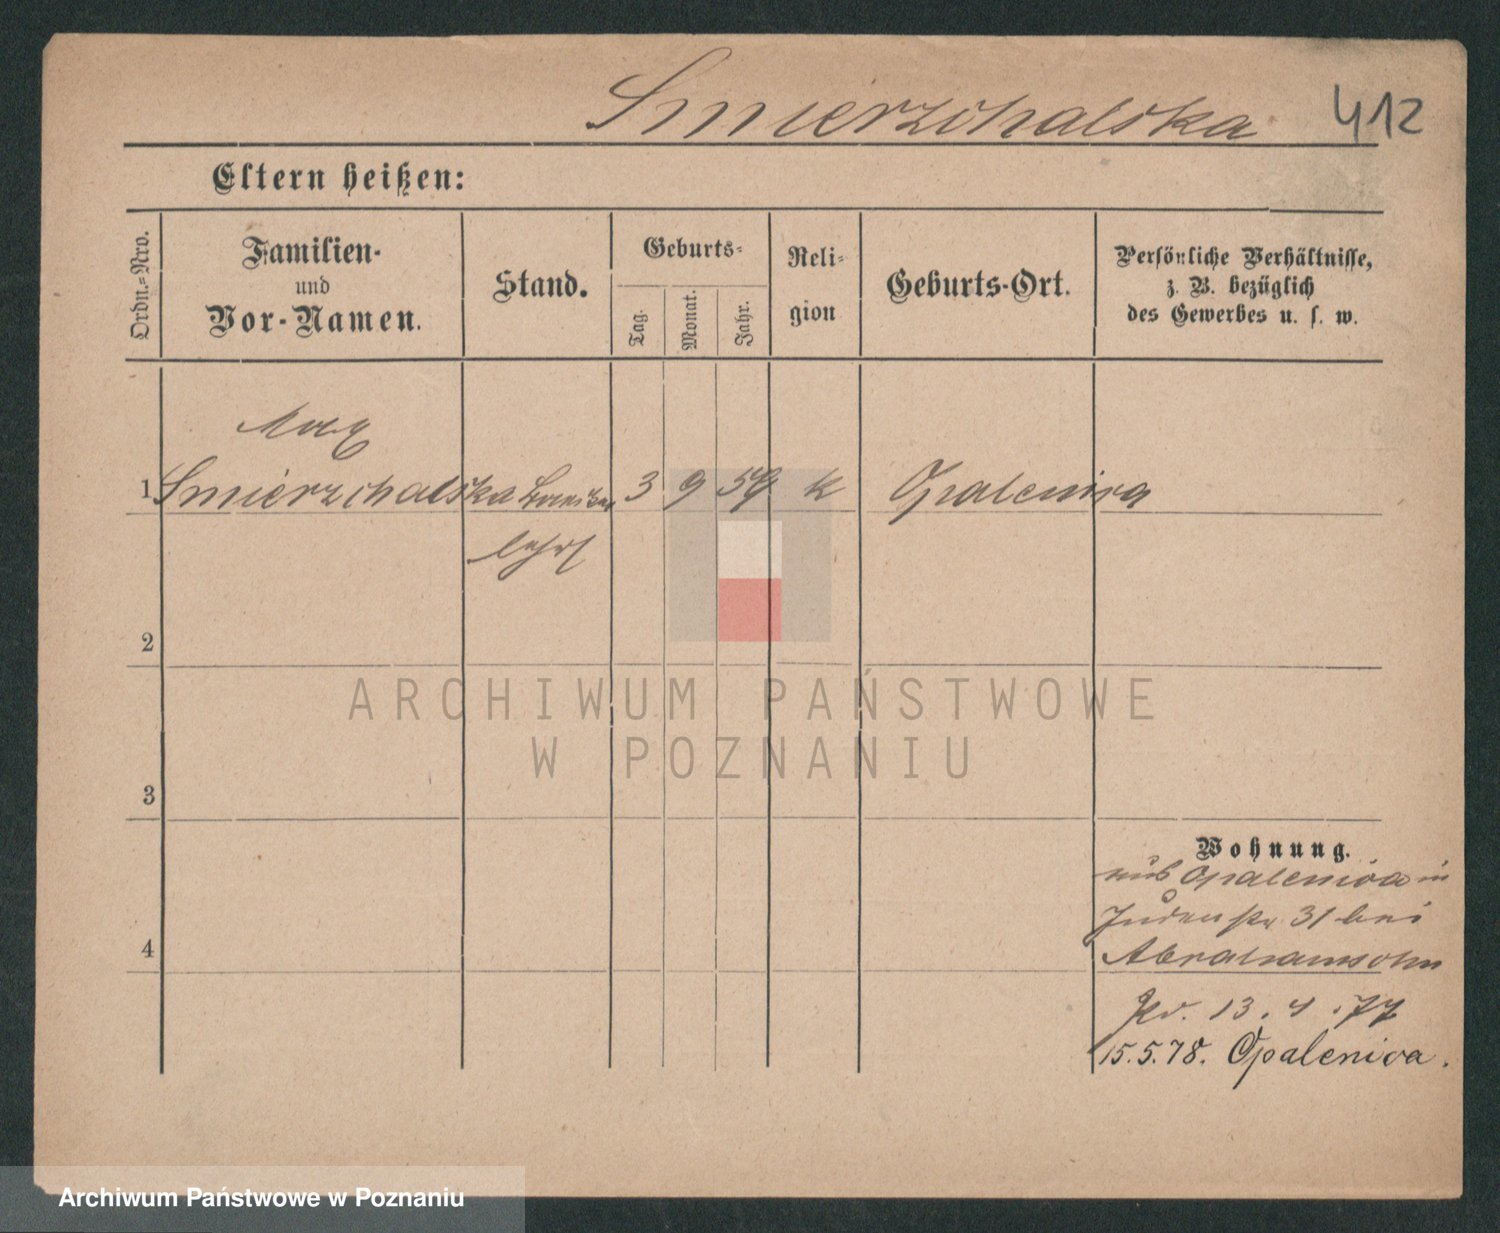 Smierzchalska 412
Eltern heißen:
Ordn.-Nro.
Familien-
und
Vor-Namen.
Stand.
Geburts-
Tag.
Monat.
Jahr.
Reli-
gion
Geburts-Ort.
Persönliche Verhältnisse,
z. B. bezüglich
des Gewerbes u. s. w.
Max
1 Smierzchalska 3 9 59 k Opalenica
2
ARCHIWUM PAŃSTWOWE
W POZNANIU
3
Wohnung.
aus Opalenica in
Judenstr 31 bei
4
Abrahamsohn
13. 4. 77
15. 5. 78. Opalenica.
Archiwum Państwowe w Poznaniu